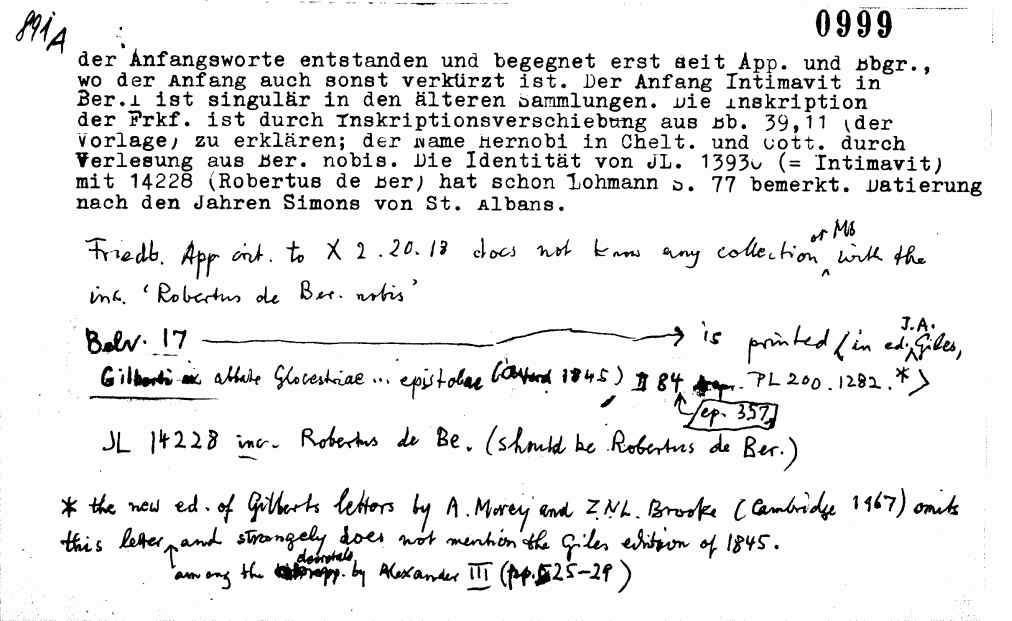 891A
0999
der Anfangsworte entstanden und begegnet erst seit App. und Bbgr.,
wo der Anfang auch sonst verkürzt ist. Der Anfang Intimavit in
Ber.I ist singulär in den älteren Sammlungen. Die Inskription
der Frkf. ist durch Inskriptionsverschiebung aus Bb. 39,11 (der
Vorlage) zu erklären; der Name Hernobi in Chelt. und Cott. durch
Verlesung aus Ber. nobis. Die Identität von JL. 13930 (= Intimavit)
mit 14228 (Robertus de Ber) hat schon Lohmann S. 77 bemerkt. Datierung
nach den Jahren Simons von St. Albans.
or MS
Friedb. App crit. to X 2.20.18 does not know any collection with the
inc. 'Robertus de Ber. nobis'
Belv. 17 → is printed (in ed. J.A. Giles,
Gilberti abbate Glocestriae ... epistolae (Oxford 1845) II 84 PL 200.1282.*)
ep. 357
JL 14228 inc. Robertus de Be. (should be Robertus de Ber.)
* the new ed. of Gilberts letters by A. Morey and Z.N.L. Brooke (Cambridge 1967) omits
this letter and strangely does not mention the Giles edition of 1845.
among the decretals by Alexander III (pp. 525-29)